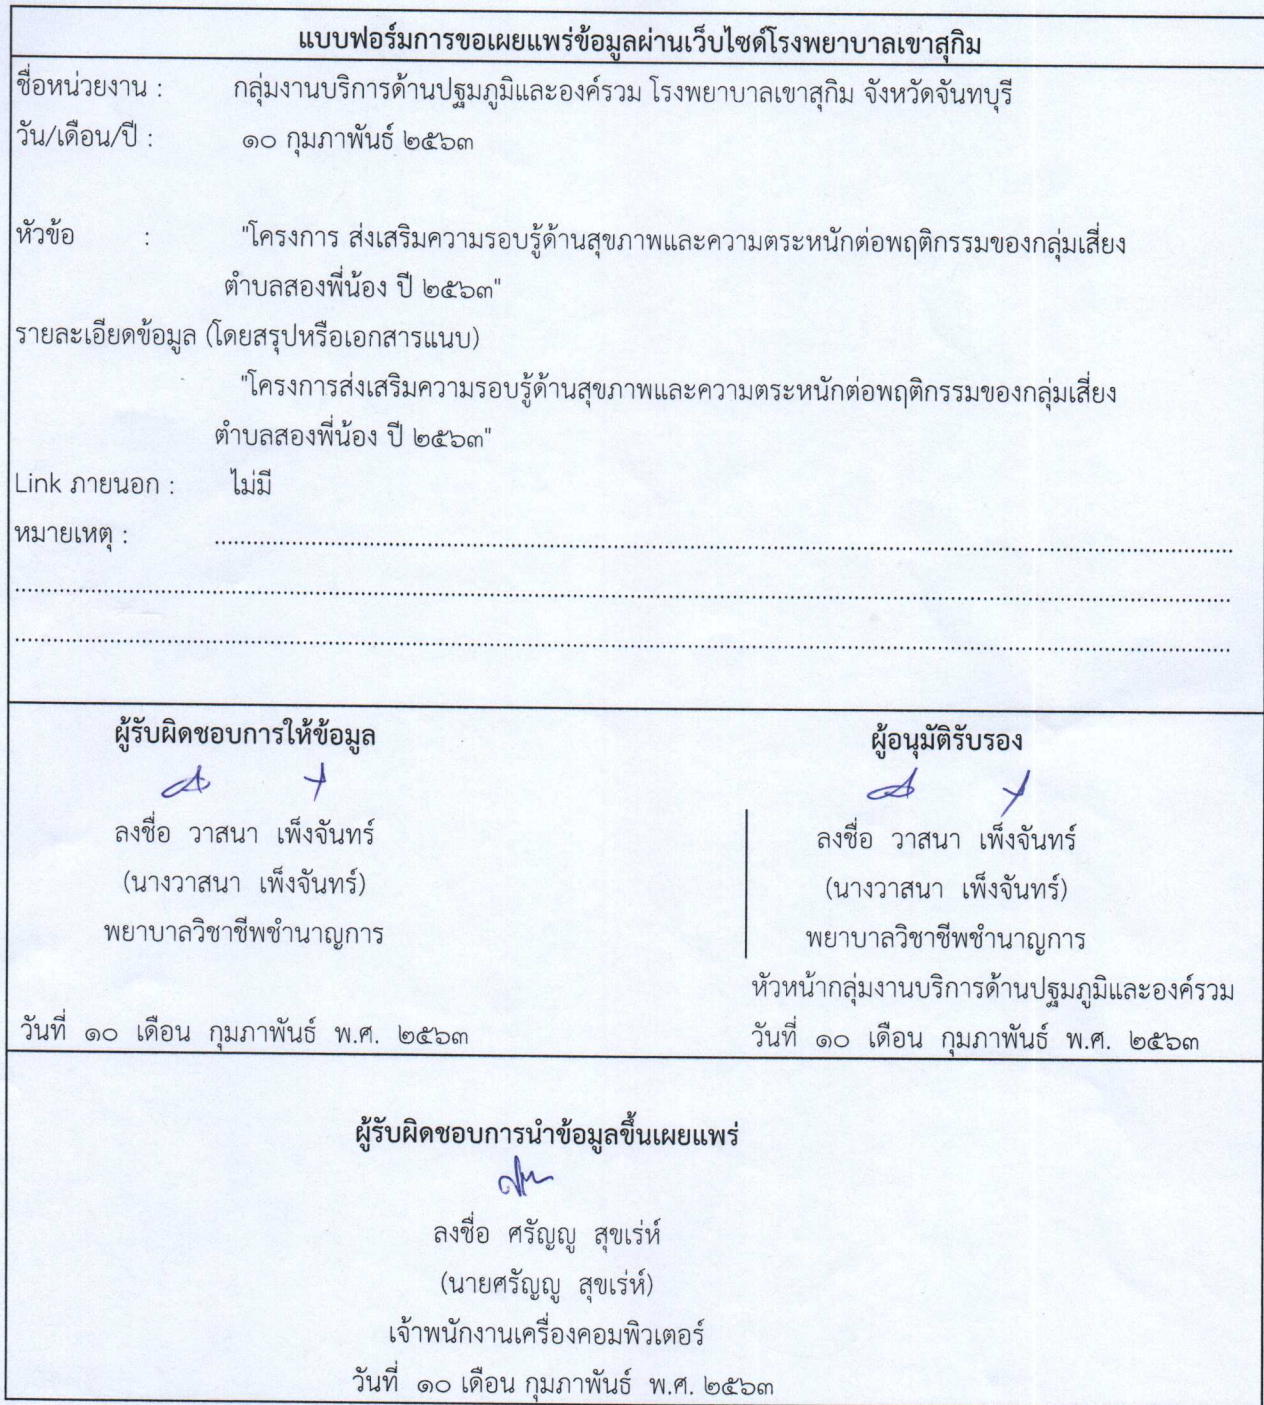 แบบฟอร์มการขอเผยแพร่ข้อมูลผ่านเว็บไซด์โรงพยาบาลเขาสุกิม
ชื่อหน่วยงาน : กลุ่มงานบริการด้านปฐมภูมิและองค์รวม โรงพยาบาลเขาสุกิม จังหวัดจันทบุรี
วัน/เดือน/ปี : ๑๐ กุมภาพันธ์ ๒๕๖๓
หัวข้อ : "โครงการ ส่งเสริมความรอบรู้ด้านสุขภาพและความตระหนักต่อพฤติกรรมของกลุ่มเสี่ยง
ตำบลสองพี่น้อง ปี ๒๕๖๓"
รายละเอียดข้อมูล (โดยสรุปหรือเอกสารแนบ)
"โครงการส่งเสริมความรอบรู้ด้านสุขภาพและความตระหนักต่อพฤติกรรมของกลุ่มเสี่ยง
ตำบลสองพี่น้อง ปี ๒๕๖๓"
Link ภายนอก : ไม่มี
หมายเหตุ :
ผู้รับผิดชอบการให้ข้อมูล
ลงชื่อ วาสนา เพ็งจันทร์
(นางวาสนา เพ็งจันทร์)
พยาบาลวิชาชีพชำนาญการ
วันที่ ๑๐ เดือน กุมภาพันธ์ พ.ศ. ๒๕๖๓
ผู้อนุมัติรับรอง
ลงชื่อ วาสนา เพ็งจันทร์
(นางวาสนา เพ็งจันทร์)
พยาบาลวิชาชีพชำนาญการ
หัวหน้ากลุ่มงานบริการด้านปฐมภูมิและองค์รวม
วันที่ ๑๐ เดือน กุมภาพันธ์ พ.ศ. ๒๕๖๓
ผู้รับผิดชอบการนำข้อมูลขึ้นเผยแพร่
ลงชื่อ ศรัญญู สุขเร่ห์
(นายศรัญญู สุขเร่ห์)
เจ้าพนักงานเครื่องคอมพิวเตอร์
วันที่ ๑๐ เดือน กุมภาพันธ์ พ.ศ. ๒๕๖๓